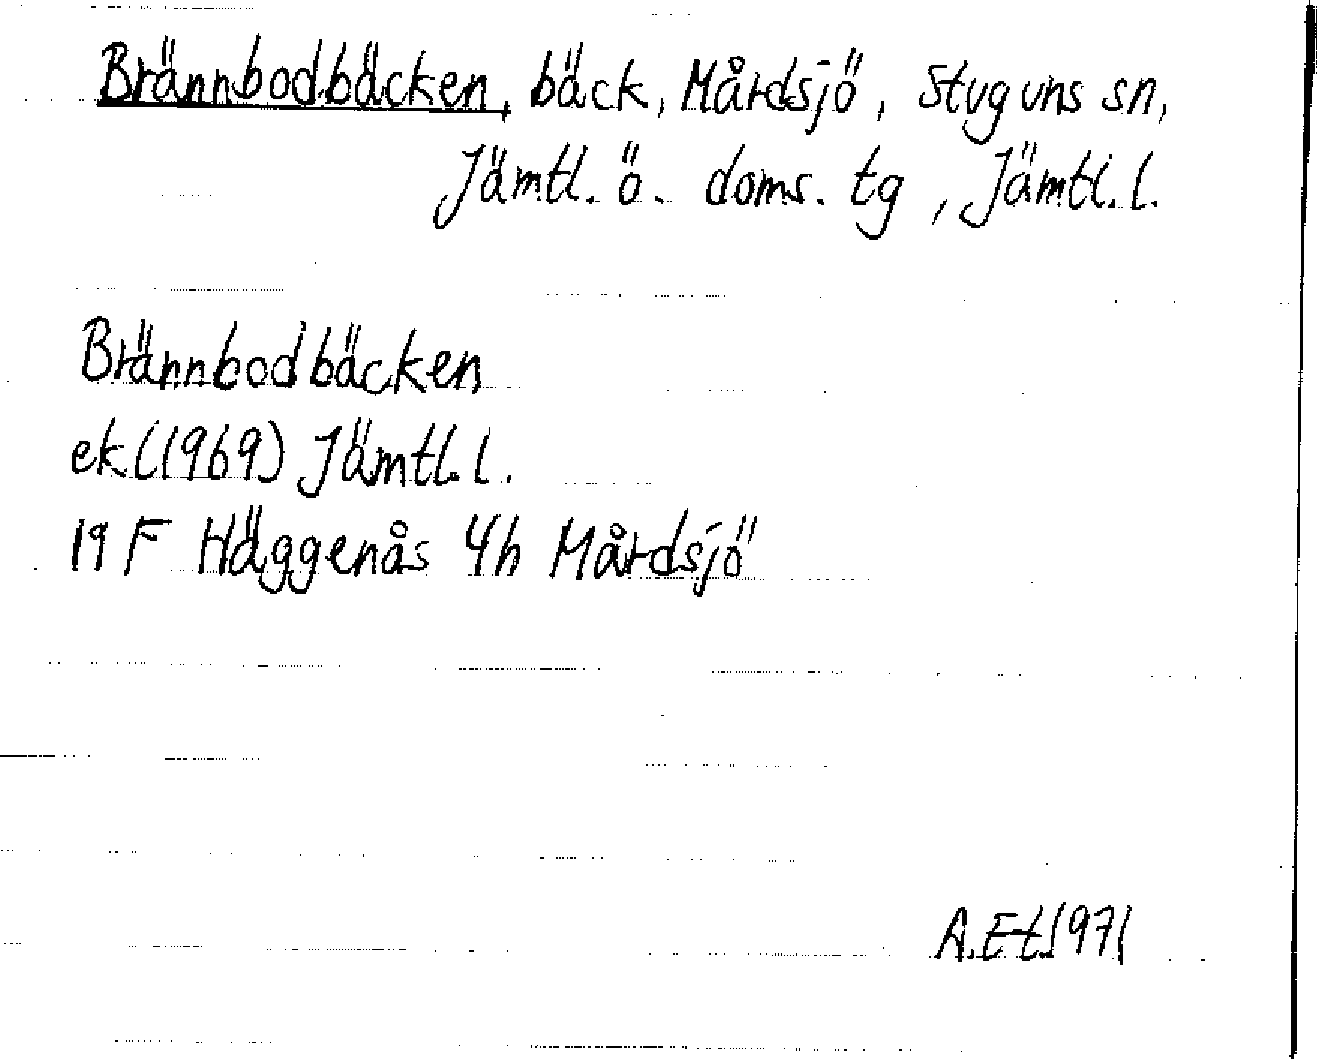 Brännbodbäcken, bäck, Mårdsjö, Stuguns sn,
Jämtl. ö. doms. tg, Jämtl. l.
Brännbodbäcken
ek (1969) Jämtl. l.
19 F Häggenås 4h Mårdsjö
A. Et. 1971